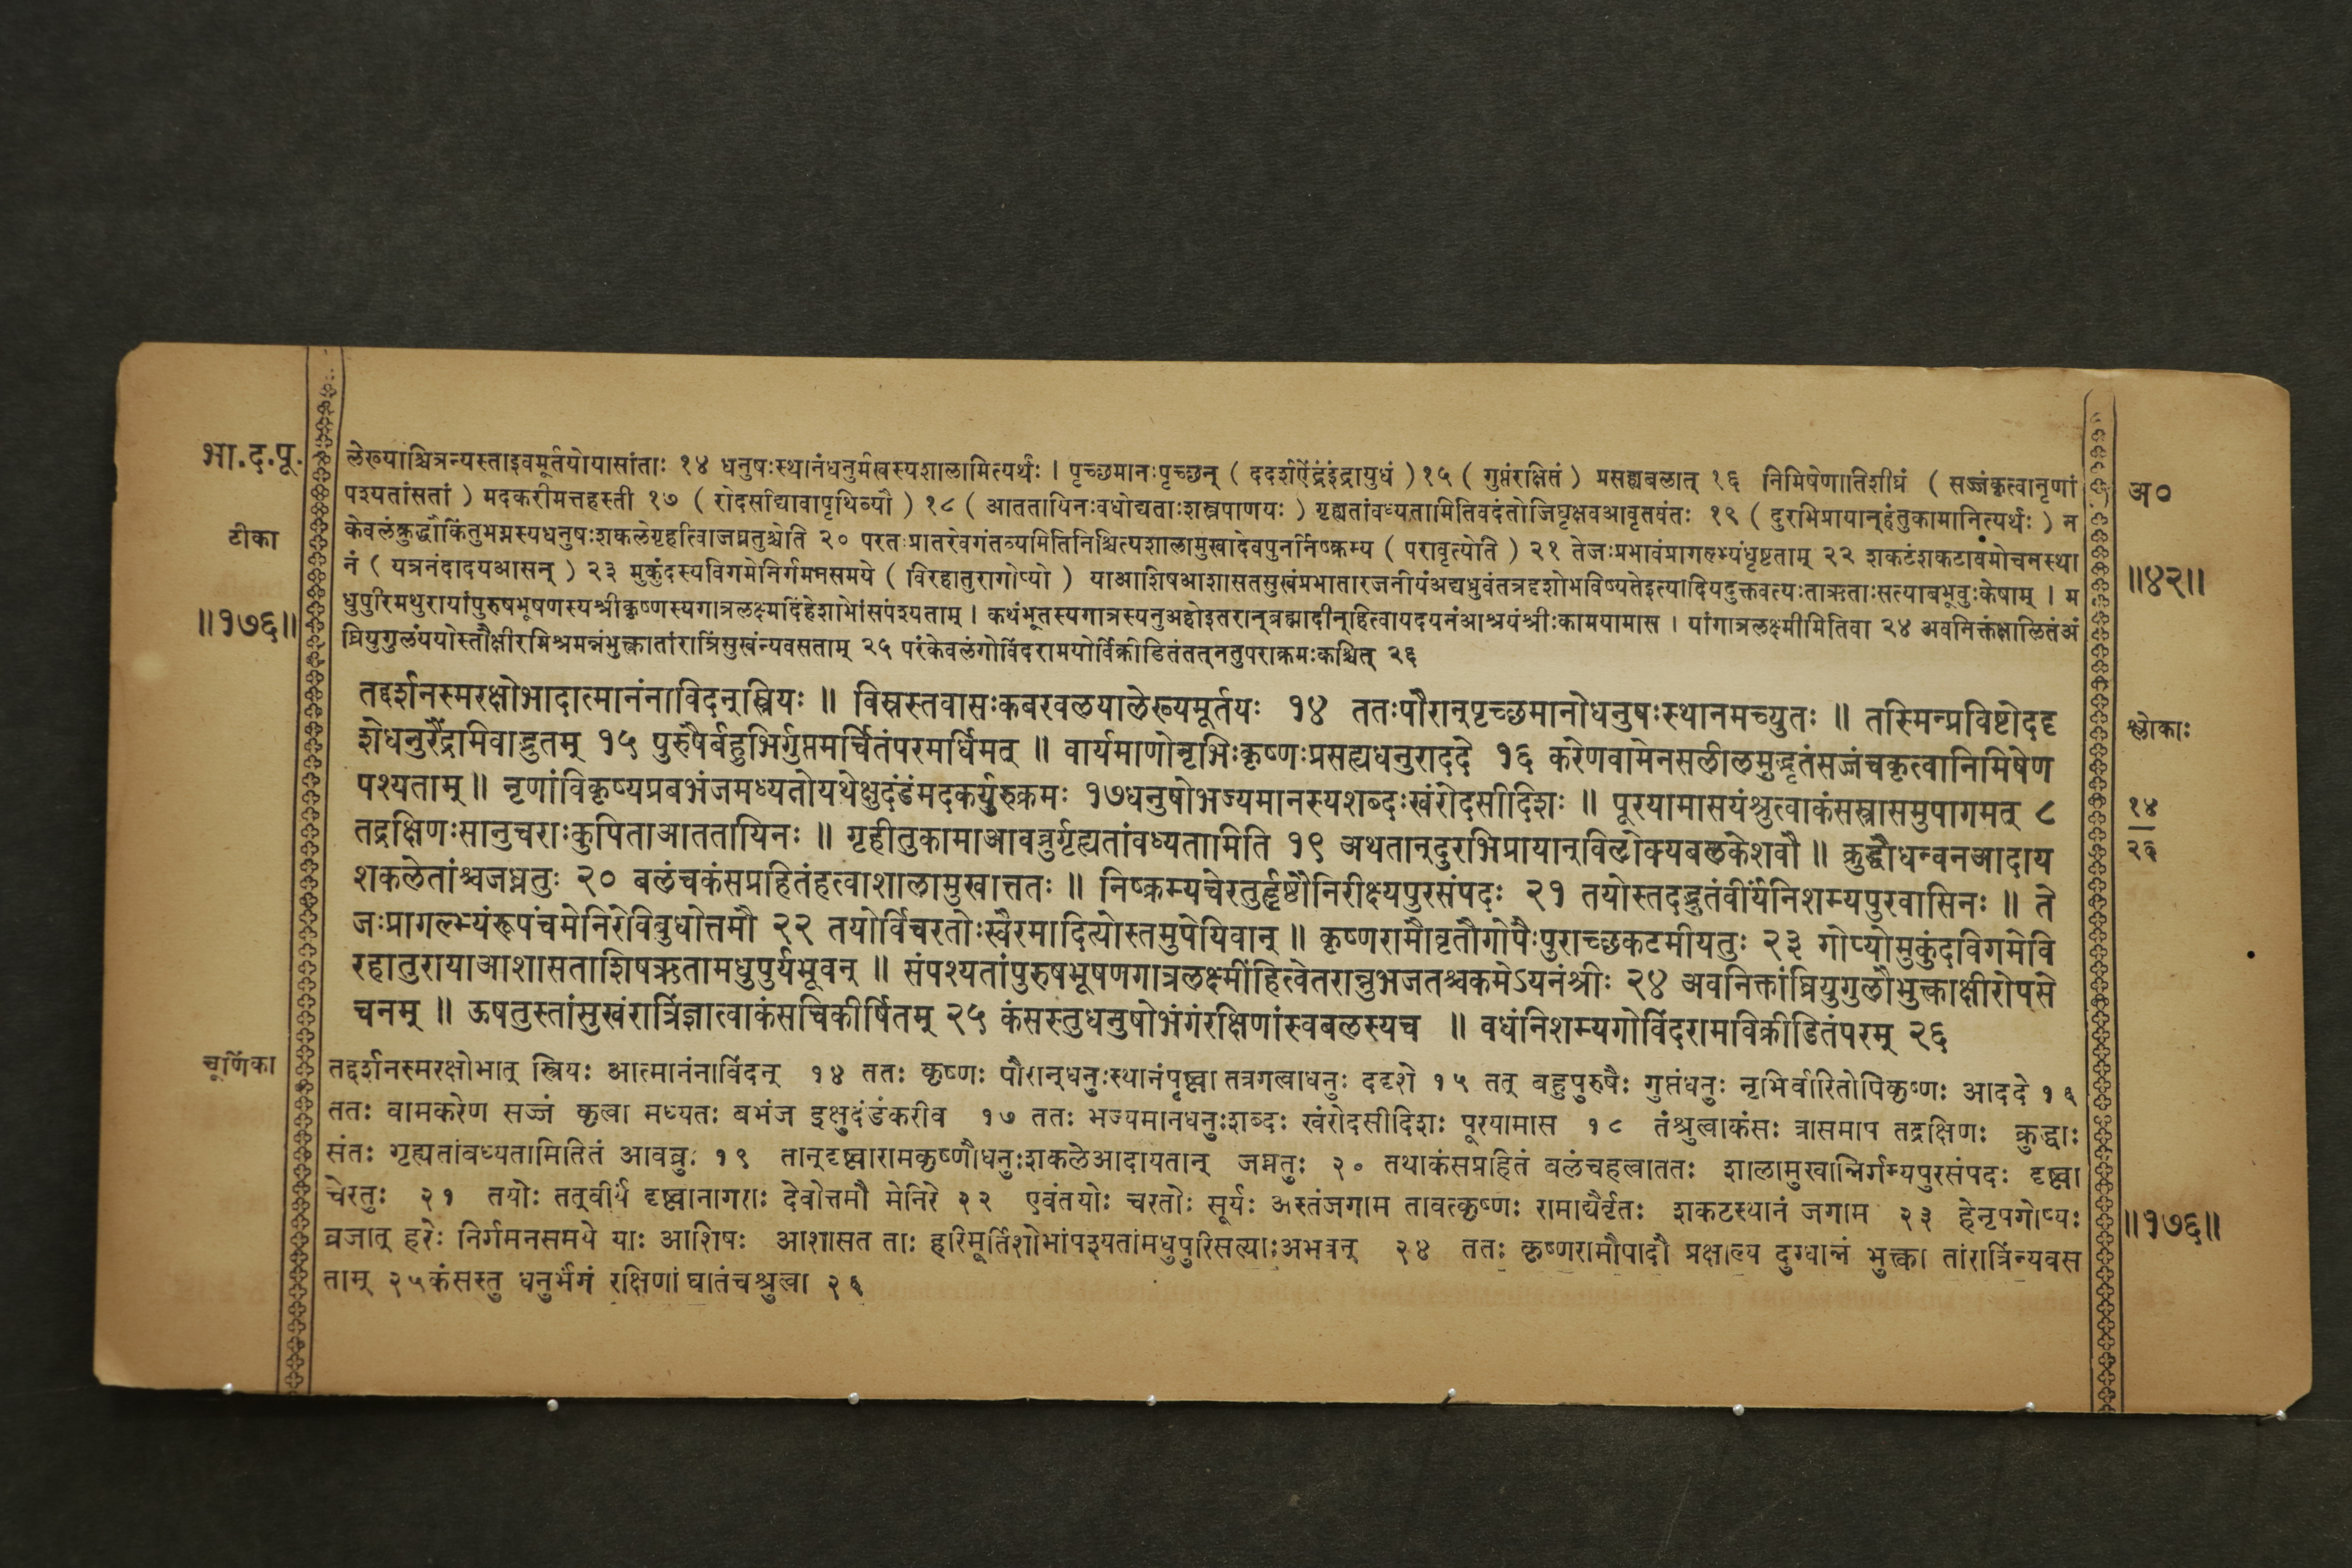 भा.द.पू.
टीका
॥१७६॥
लेख्याश्चित्रन्यस्ताइवमूर्तयोयासांताः १४ धनुषःस्थानंधनुर्मखस्यशालामित्यर्थः । पृच्छमानःपृच्छन् ( ददर्शऐंद्रंइंद्रायुधं ) १५ ( गुप्तंरक्षितं ) प्रसह्यबलात् १६ निमिषेणातिशीघ्रं ( सज्जंकृत्वानृणां
पश्यतांसतां ) मदकरीमत्तहस्ती १७ ( रोदसीद्यावापृथिव्यौ ) १८ ( आततायिनःवधोद्यताःशस्त्रपाणयः ) गृह्यतांवध्यतामितिवदंतोजिघृक्षवआवृतवंतः १९ ( दुरभिप्रायान्हंतुकामानित्यर्थः ) न
केवलंक्रुद्धौकिंतुभग्नस्यधनुषःशकलेगृहीत्वाजघ्नतुश्चेति २० परतःप्रातरेवगंतव्यमितिनिश्चित्यशालामुखादेवपुनर्निष्क्रम्य ( परावृत्येति ) २१ तेजःप्रभावंप्रागल्भ्यंधृष्टताम् २२ शकटंशकटावमोचनस्था
नं ( यत्रनंदादयआसन् ) २३ मुकुंदस्यविगमेनिर्गमनसमये ( विरहातुरागोप्यो ) याआशिषआशासतसुखंप्रभातारजनीयंअद्यध्रुवंतत्रदृशोभविष्यतेइत्यादियदुक्तवत्यःताऋताःसत्याबभूवुःकेषाम् । म
धुपुरिमथुरायांपुरुषभूषणस्यश्रीकृष्णस्यगात्रलक्ष्मींदेहशोभांसंपश्यताम् । कथंभूतस्यगात्रस्यनुअहोइतरान्ब्रह्मादीन्हित्वायदयनंआश्रयंश्रीःकामयामास । यांगात्रलक्ष्मीमितिवा २४ अवनिक्तंक्षालितंअं
घ्रियुगुलंययोस्तौक्षीरमिश्रमन्नंभुक्त्वातांरात्रिंसुखंन्यवसताम् २५ परंकेवलंगोविंदरामयोर्विक्रीडितंतत्नतुपराक्रमःकश्चित् २६
तद्दर्शनस्मरक्षोभादात्मानंनाविदन्स्त्रियः ॥ विस्रस्तवासःकबरवलयालेख्यमूर्तयः १४ ततःपौरान्पृच्छमानोधनुषःस्थानमच्युतः ॥ तस्मिन्प्रविष्टोददृ
शेधनुरैंद्रमिवाद्भुतम् १५ पुरुषैर्बहुभिर्गुप्तमर्चितंपरमर्धिमत् ॥ वार्यमाणोनृभिःकृष्णःप्रसह्यधनुराददे १६ करेणवामेनसलीलमुद्धृतंसज्जंचकृत्वानिमिषेण
पश्यताम् ॥ नृणांविकृष्यप्रबभंजमध्यतोयथेक्षुदंडंमदकर्युरुक्रमः १७धनुषोभज्यमानस्यशब्दःखंरोदसीदिशः ॥ पूरयामासयंश्रुत्वाकंसस्त्रासमुपागमत् ८
तद्रक्षिणःसानुचराःकुपिताआततायिनः ॥ गृहीतुकामाआवव्रुर्गृह्यतांवध्यतामिति १९ अथतान्दुरभिप्रायान्विलोक्यबलकेशवौ ॥ क्रुद्धौधन्वनआदाय
शकलेतांश्चजघ्नतुः २० बलंचकंसप्रहितंहत्वाशालामुखात्ततः ॥ निष्क्रम्यचेरतुर्हृष्टौनिरीक्ष्यपुरसंपदः २१ तयोस्तदद्भुतंवीर्यंनिशम्यपुरवासिनः ॥ ते
जःप्रागल्भ्यंरूपंचमेनिरेविबुधोत्तमौ २२ तयोर्विचरतोःस्वैरमादित्योस्तमुपेयिवान् ॥ कृष्णरामौवृतौगोपैःपुराच्छकटमीयतुः २३ गोप्योमुकुंदविगमेवि
रहातुरायाआशासताशिषऋतामधुपुर्यभूवन् ॥ संपश्यतांपुरुषभूषणगात्रलक्ष्मींहित्वेतरान्नुभजतश्चकमेऽयनंश्रीः २४ अवनिक्तांघ्रियुगुलौभुक्त्वाक्षीरोपसे
चनम् ॥ ऊषतुस्तांसुखंरात्रिंज्ञात्वाकंसचिकीर्षितम् २५ कंसस्तुधनुषोभंगंरक्षिणांस्वबलस्यच ॥ वधंनिशम्यगोविंदरामविक्रीडितंपरम् २६
चूर्णिका
तद्दर्शनस्मरक्षोभात् स्त्रियः आत्मानंनाविंदन् १४ ततः कृष्णः पौरान्धनुःस्थानंपृष्ट्वा तत्रगत्वाधनुः ददृशे १५ तत् बहुपुरुषैः गुप्तंधनुः नृभिर्वारितोपिकृष्णः आददे १६
ततः वामकरेण सज्जं कृत्वा मध्यतः बभंज इक्षुदंडंकरीव १७ ततः भज्यमानधनुःशब्दः खंरोदसीदिशः पूरयामास १८ तंश्रुत्वाकंसः त्रासमाप तद्रक्षिणः क्रुद्धाः
संतः गृह्यतांवध्यतामितितं आवव्रुः १९ तान्दृष्ट्वारामकृष्णौधनुःशकलेआदायतान् जघ्नतुः २० तथाकंसप्रहितं बलंचहत्वाततः शालामुखान्निर्गम्यपुरसंपदः दृष्ट्वा
चेरतुः २१ तयोः तत्वीर्यं दृष्ट्वानागराः देवोत्तमौ मेनिरे २२ एवंतयोः चरतोः सूर्यः अस्तंजगाम तावत्कृष्णः रामाद्यैर्वृतः शकटस्थानं जगाम २३ हेनृपगोप्यः
व्रजात् हरेः निर्गमनसमये याः आशिषः आशासत ताः हरिमूर्तिशोभांपश्यतांमधुपुरिसत्याःअभवन् २४ ततः कृष्णरामौपादौ प्रक्षाल्य दुग्धान्नं भुक्त्वा तांरात्रिंन्यवस
ताम् २५कंसस्तु धनुर्भंगं रक्षिणां घातंचश्रुत्वा २६
अ०
॥४२॥
श्लोकाः
१४
२६
॥१७६॥